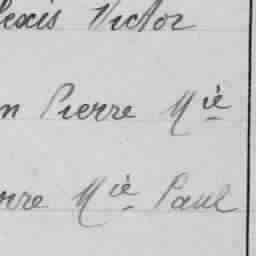 lexis Victor
n Pierre Mie
rre Mie Paul